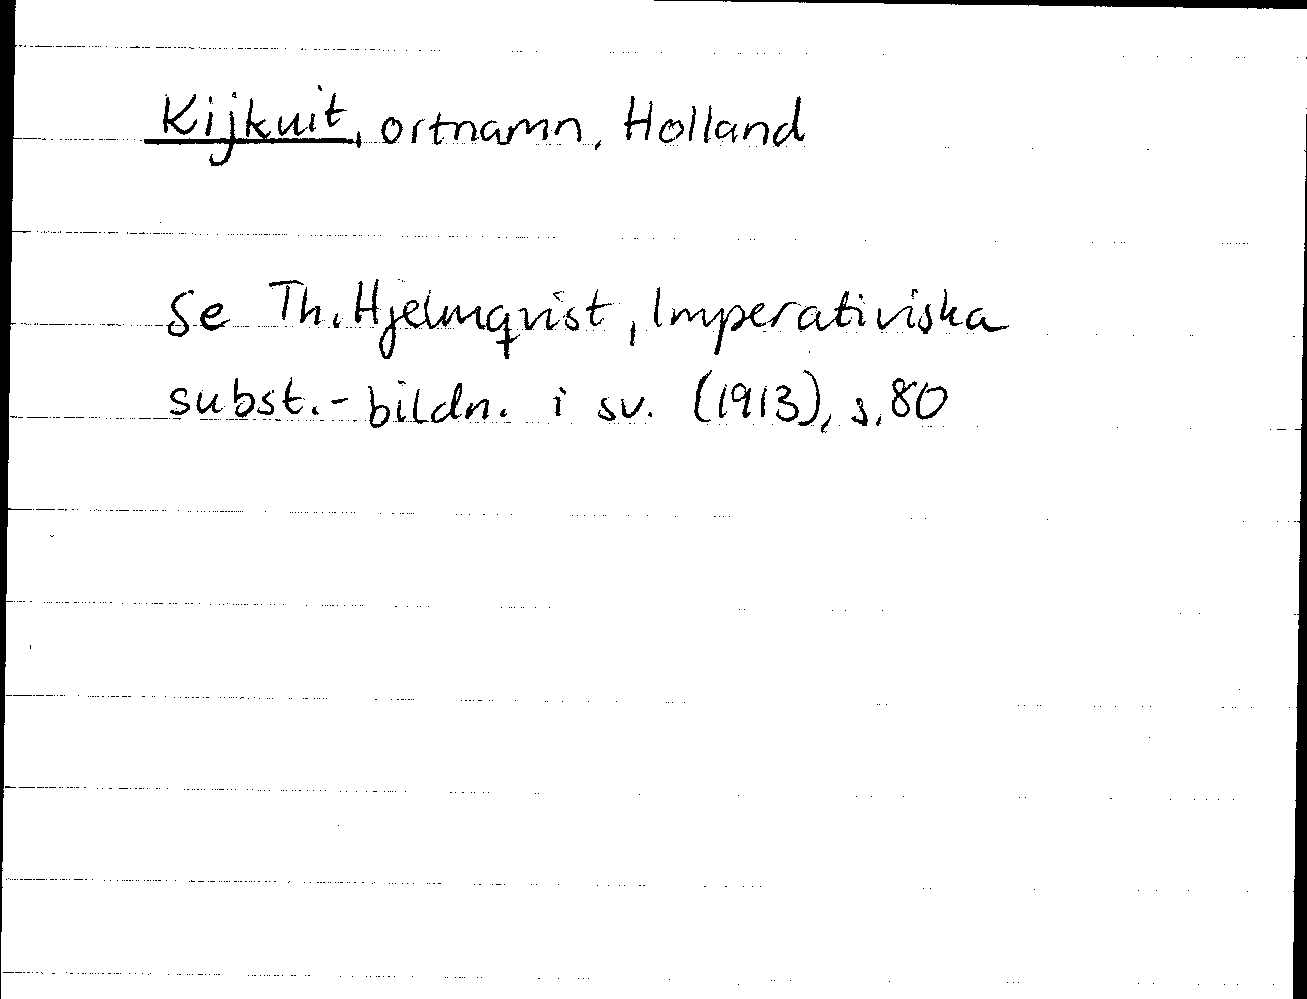 Kijkuit, ortnamn, Holland
Se Th. Hjelmqvist, Imperativiska
subst.-bildn. i sv. (1913), s. 80